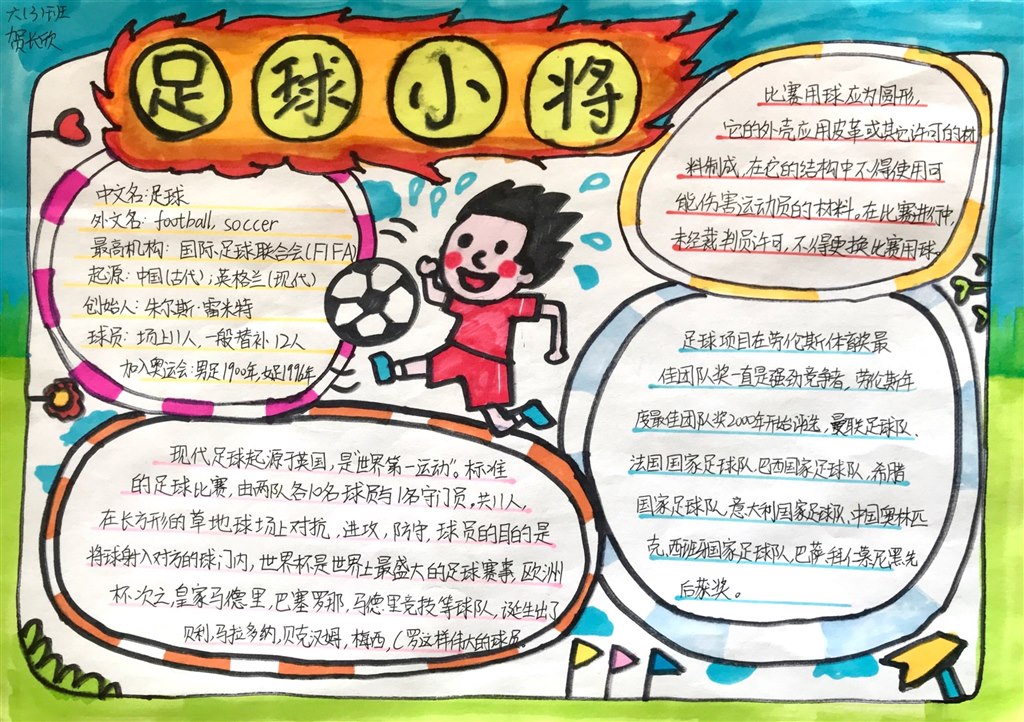 六(3)班
贺长欣
足球小将
中文名:足球
外文名: football, soccer
最高机构: 国际足球联合会(FIFA)
起源: 中国(古代);英格兰(现代)
创始人: 朱尔斯·雷米特
球员: 场上11人,一般替补12人
加入奥运会:男足1900年,女足1996年
比赛用球应为圆形,
它的外壳应用皮革或其它许可的材
料制成,在它的结构中不得使用可
能伤害运动员的材料。在比赛进行中,
未经裁判员许可,不得更换比赛用球。
现代足球起源于英国,是“世界第一运动”。标准
的足球比赛,由两队各10名球员与1名守门员,共11人,
在长方形的草地球场上对抗,进攻,防守,球员的目的是
将球射入对方的球门内,世界杯是世界上最盛大的足球赛事,欧洲
杯次之,皇家马德里,巴塞罗那,马德里竞技等球队,诞生出了
贝利,马拉多纳,贝克汉姆,梅西,C罗这样伟大的球员。
足球项目在劳伦斯体育奖最
佳团队奖一直是强劲竞争者,劳伦斯年
度最佳团队奖2000年开始评选,曼联足球队、
法国国家足球队,巴西国家足球队,希腊
国家足球队,意大利国家足球队,中国奥林匹
克,西班牙国家足球队,巴萨,拜仁慕尼黑先
后获奖。